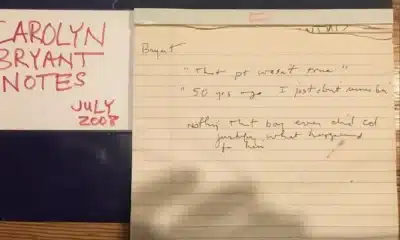 CAROLYN
BRYANT
NOTES
JULY
2008
Bryant
"That pt wasn't true"
"50 yrs ago I just don't remember
Nothing that boy ever did cd
justify what happened
to him